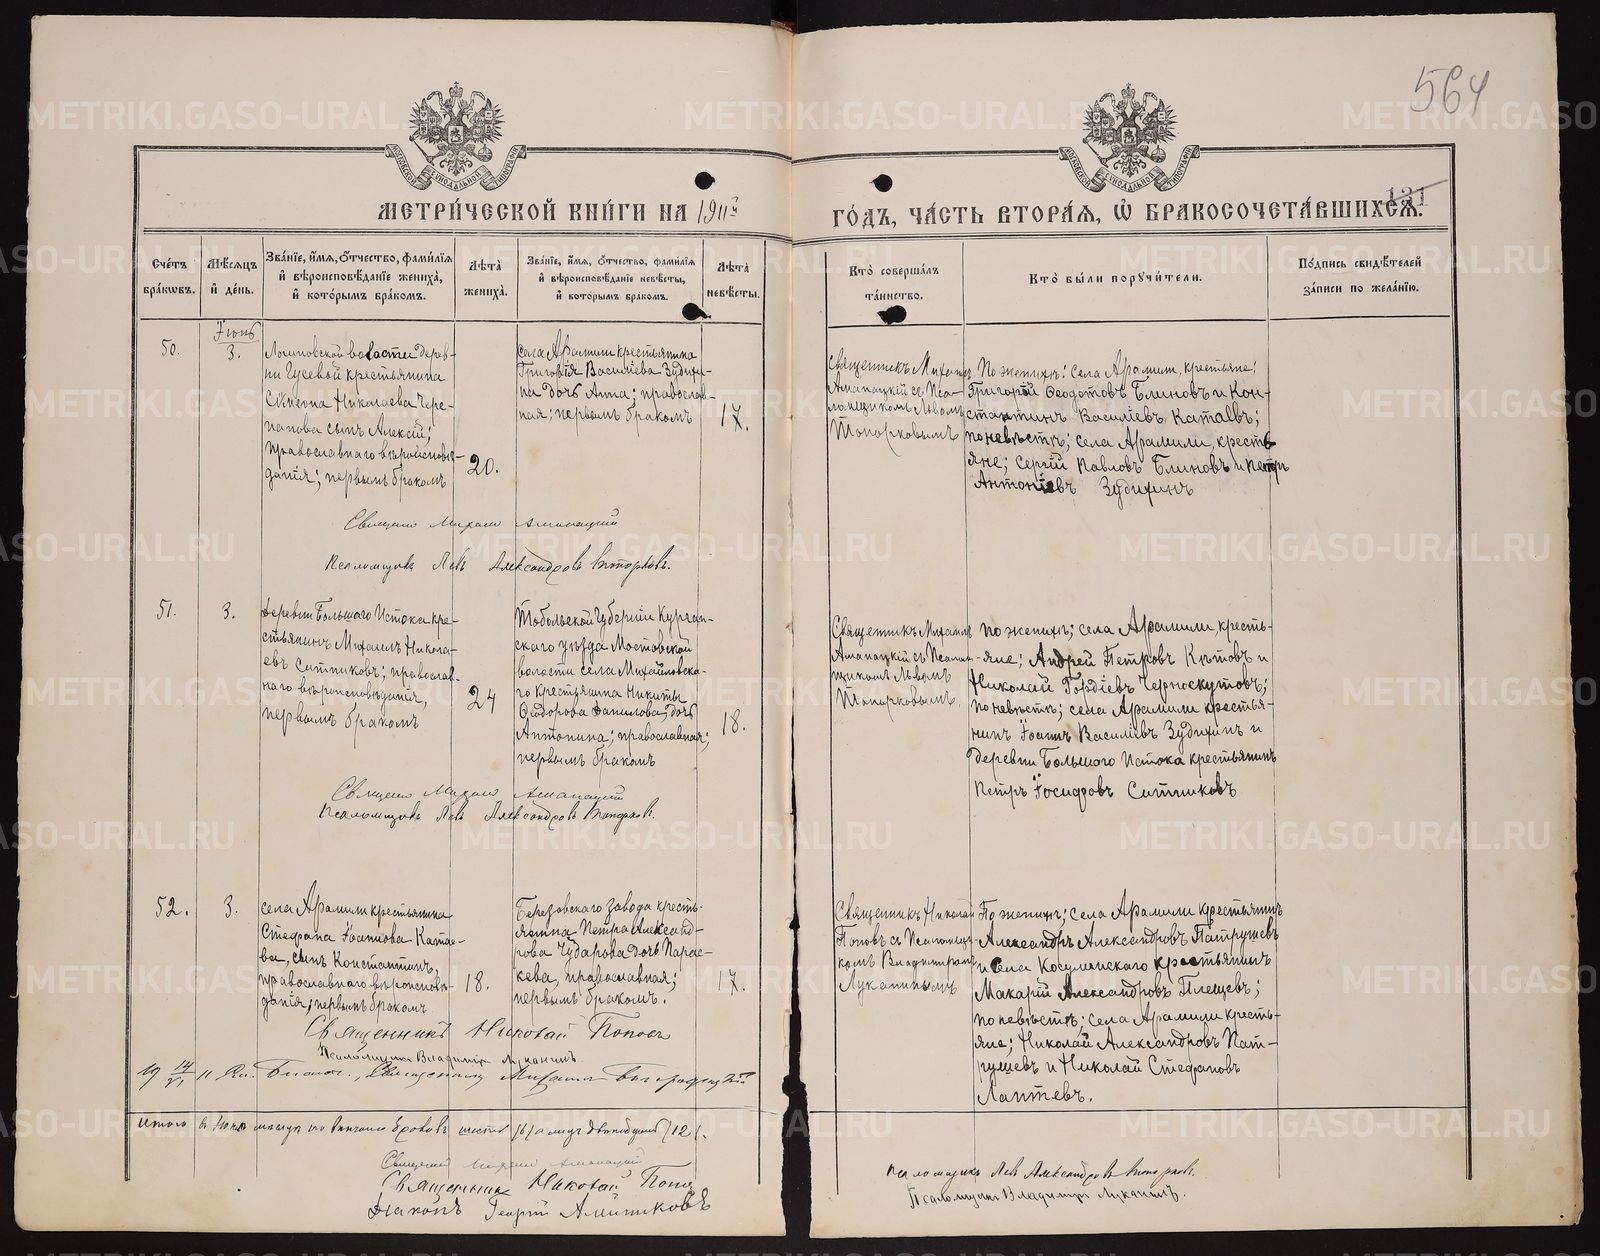 564
131
МОСКОВСКОЙ СѴНОДАЛЬНОЙ ТИПОГРАФІИ
МОСКОВСКОЙ СѴНОДАЛЬНОЙ ТИПОГРАФІИ
МЕТРИ́ЧЕСКОЙ КНИ́ГИ НА 1911й
ГО́ДЪ, ЧА́СТЬ ВТОРА́Я, Ѡ҆ БРАКОСОЧЕТА́ВШИХСЯ.
Сче́тъ бра́кωвъ.
Мѣ́сяцъ и҆ де́нь.
Зва́нїе, и҆́мя, ѻ҆́тчество, фами́лїя и҆ вѣроисповѣ́данїе жениха̀, и҆ кото́рымъ бра́комъ.
Лѣ́та жениха̀.
Зва́нїе, и҆́мя, ѻ҆́тчество, фами́лїя и҆ вѣроисповѣ́данїе невѣ́сты, и҆ кото́рымъ бра́комъ.
Лѣ́та невѣ́сты.
Кто̀ соверша́лъ та́инство.
Кто̀ бы́ли поручи́тели.
По́дпись свидѣ́телей за́писи по жела́нїю.
50.
Іюнь
3.
Логиновской волости дерев-
ни Гусевой крестьянина
Симеона Николаева Чере-
панова сынъ Алексій;
православнаго вѣроисповѣ-
данія; первымъ бракомъ
20.
села Арамили крестьянина
Григорія Васильева Зудихи-
на дочь Анна; православ-
ная; первымъ бракомъ
17.
Священникъ Михаилъ
Аманацкій съ Пса-
ломщикомъ Львомъ
Топорковымъ
По женихѣ: села Арамили, крестьяне:
Григорій Ѳеодотовъ Блиновъ и Кон-
стантинъ Василіевъ Катаевъ;
по невѣстѣ; села Арамили, кресть
яне; Сергій Павловъ Блиновъ и Петръ
Антоніевъ Зудихинъ
Священ Михаил Аманацкій
Псаломщикъ Левъ Александровъ Топорковъ.
51.
3.
деревни Большаго Истока кре-
стьянинъ Михаилъ Никола-
евъ Ситниковъ; православ-
наго вѣроисповѣданія,
первымъ бракомъ
24
Тобольской Губерніи Курган-
скаго уѣзда Мостовской
волости села Михайловска-
го крестьянина Никиты
Ѳеодорова Данилова, дочь
Антонина; православная;
первымъ бракомъ
18.
Священникъ Михаилъ
Аманацкій съ Псалом-
щикомъ Львомъ
Топорковымъ.
По женихѣ; села Арамили, кресть-
яне; Андрей Петровъ Кѣтовъ и
Николай Гордіевъ Черноскутовъ;
по невѣстѣ; села Арамили крестья-
нинъ Іоаннъ Василіевъ Зудихинъ и
деревни Большаго Истока крестьянинъ
Петръ Іосифовъ Ситниковъ
Священ Михаил Аманацкій
Псаломщикъ Левъ Александровъ Топорковъ.
52.
3.
села Арамили крестьянина
Стефана Іоаннова Катае-
ва, сынъ Константинъ,
православнаго вѣроисповѣ-
данія; первымъ бракомъ
18.
Березовскаго завода кресть-
янина Петра Александ-
рова Чударова дочь Парас-
кева, православная;
первымъ бракомъ.
17.
Священникъ Николай
Поповъ съ Псаломщи-
комъ Владиміромъ
Луканинымъ
По женихѣ; села Арамили крестьянинъ
Александръ Александровъ Патрушевъ
и села Косулинскаго крестьянинъ
Макарій Александровъ Плещевъ;
по невѣстѣ; села Арамили кресть-
яне; Николай Александровъ Пат-
рушевъ и Николай Стефановъ
Лаптевъ.
Священникъ Николай Поповъ
Псаломщикъ Владиміръ Луканинъ.
19 14/VI 11 Священникъ Михаилъ
Итого въ Іюнѣ мѣсяцѣ шесть (6) а лицъ двѣнадцать (12).
Священ Михаил Аманацкій
Священникъ Николай Попов
Діаконъ Георгій
Псаломщикъ Левъ Александровъ Топорковъ.
Псаломщикъ Владиміръ Луканинъ.
METRIKI.GASO-URAL.RU